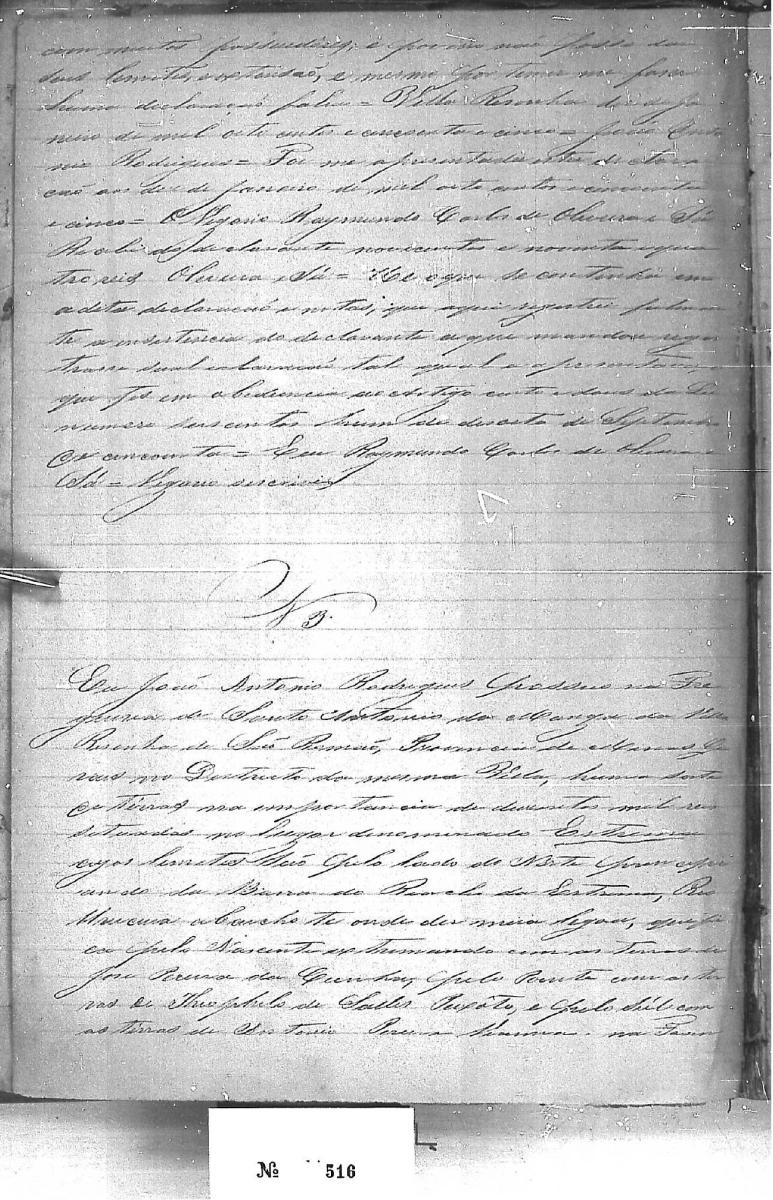 com muitos possuidores, e por isso não posso dar
seus lemites, e extensão, e mesmo por temer me faser
huma declaração falsa = Villa Risonha dez de Ja
neiro de mil oito centos e cincoenta e cinco = João Anto
nio Rodrigues = Foi me apresentada esta declara
ção aos dez de Janeiro de mil oito centos e cincoenta
e cinco = O Vigario Raymundo Carlos de Oliveira e Sá =
Recebi do declarante novecentos e noventa e qua
tro reis Oliveira e Sá = He o que se continha em
a dita declaração e notas, que aqui registei
te a insistencia do declarante a que mandou regis
trasse sua declaração tal qual a apresentou,
que fiz em obediencia ao Artigo cento e dous da Lei
numero seiscentos e hum de dezoito de Septembro
de cincoenta = Eu Raymundo Carlos de Oliveira e
Sá = Vigario escrevi
N 3.
Eu João Antonio Rodrigues possuo na Fre
guesia de Santo Antonio da Manga da Villa
Risonha de São Romão, Provincia de Minas Ge
raes no Destricto da mesma Villa, huma sorte
de terras na importancia de duzentos mil reis
situadas no lugar denominado Extrema
cujos lemites são pelo lado do Norte princepi
ando da Barra do Riacho da Extrema, Rio
Urucuia abaicho te onde der meia legoa, que fi
ca pelo Nascente extremando com as terras de
José Pereira da Cunha, pelo Poente com as ter
ras de Theophilo de Salles Peixoto, e pelo Sul com
as terras de Antonio Pereira Vianna na Fasen
Nº 516